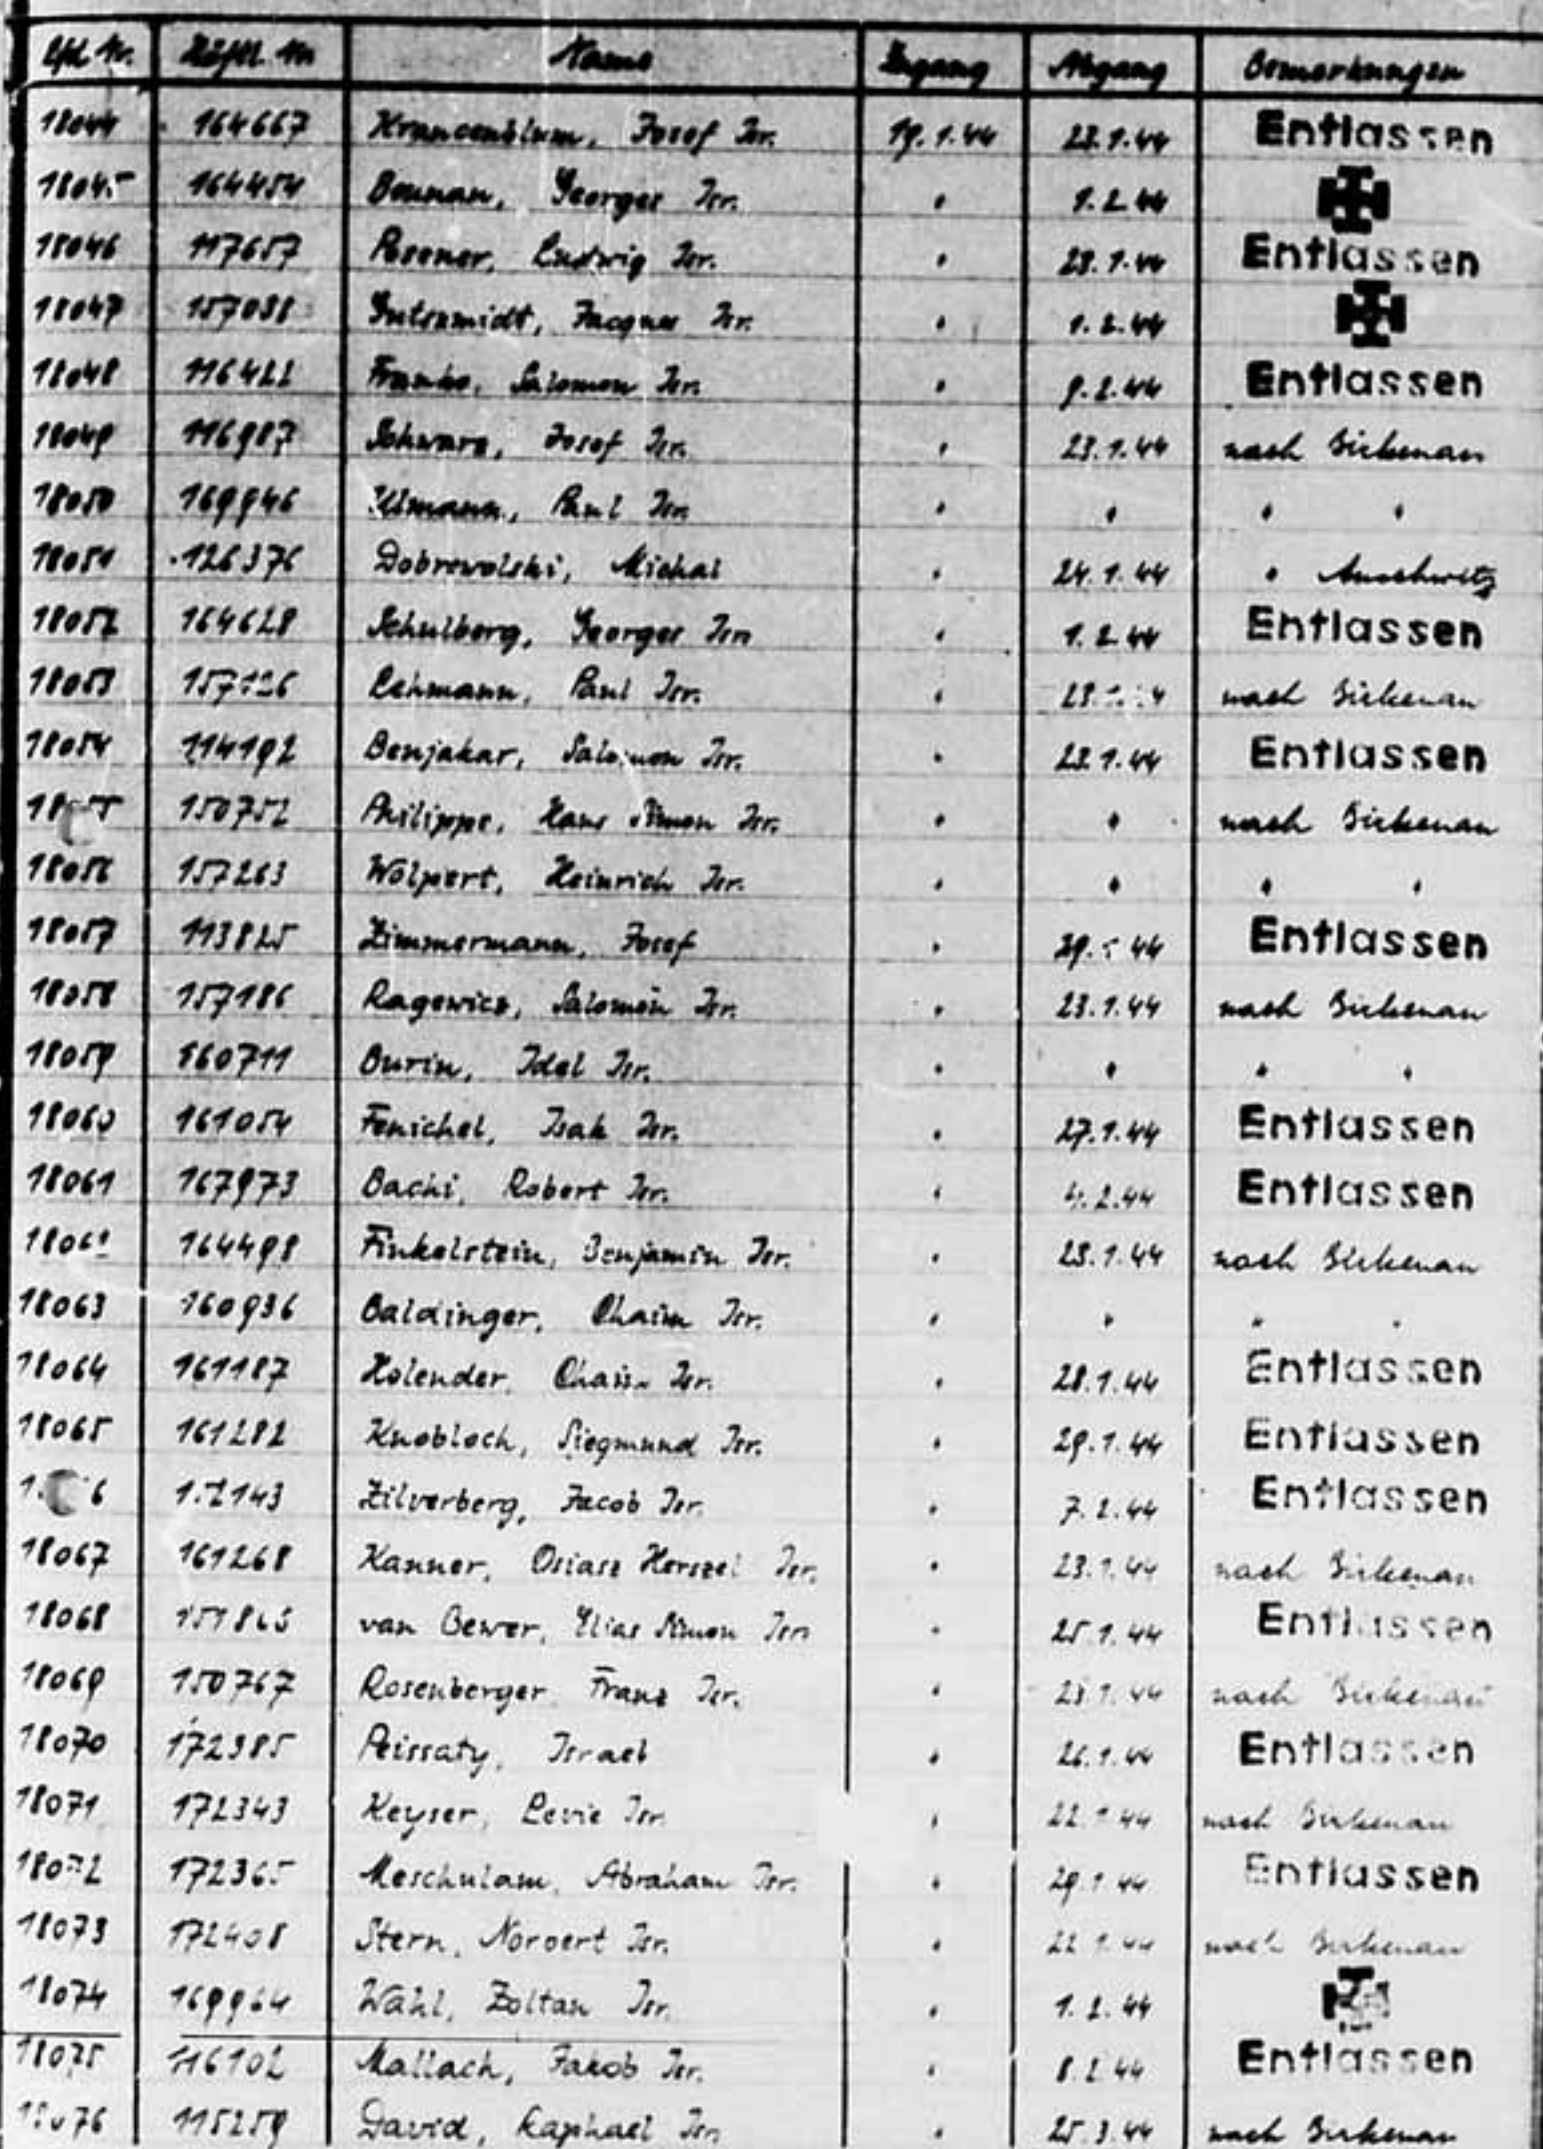 Lfd Nr. Häftl. Nr Name Zugang Abgang Bemerkungen
18044 164667 Krancenblum, Josef Isr. 19.1.44 28.1.44 Entlassen
18045 164454 Georges Isr. " 1.2.44
18046 117657 Posener, Ludwig Isr. " 28.1.44 Entlassen
18047 157088 Gutszmidt, Jacques Isr. " 1.2.44
18048 116422 Franko, Salomon Isr. " 9.2.44 Entlassen
18049 116987 Schwarz, Josef Isr. " 23.1.44 nach Birkenau
18050 169946 Ulmann, Paul Isr. " " " "
18051 126376 Dobrowolski, Michal " 24.1.44 " Auschwitz
18052 164628 Schulberg, Georges Isr. " 1.2.44 Entlassen
18053 Lehmann, Paul Isr. " nach Birkenau
18054 114192 Benjakar, Salomon Isr. " 23.1.44 Entlassen
150752 Philippe, Hans Simon Isr. " " nach Birkenau
18056 157263 Wolpert, Heinrich Isr. " " " "
18057 113825 Zimmermann, Josef " Entlassen
18058 157186 Ragewicz, Salomon Isr. " 23.1.44 nach Birkenau
18059 160711 Burin, Idel Isr. " " " "
18060 161054 Fenichel, Isak Isr. " 27.1.44 Entlassen
18061 167973 Bachi, Robert Isr. " 4.2.44 Entlassen
164498 Finkelstein, Benjamin Isr. " 23.1.44 nach Birkenau
18063 160936 Baldinger, Chaim Isr. " " " "
18064 161187 Holender, Chaim Isr. " 28.1.44 Entlassen
18065 161282 Knobloch, Siegmund Isr. " 29.1.44 Entlassen
Zilverberg, Jacob Isr. " 7.2.44 Entlassen
18067 161268 Kanner, Osiasz Herszel Isr. " 23.1.44 nach Birkenau
18068 van Bewer, Elias Simon Isr. " 25.1.44 Entlassen
18069 150767 Rosenberger Franz Isr. " 23.1.44 nach Birkenau
18070 172385 Peissaty, Israel " 26.1.44 Entlassen
18071 172343 Keyser, Levie Isr. " 22.1.44 nach Birkenau
18072 172365 Meschulam, Abraham Isr. " 29.1.44 Entlassen
18073 172408 Stern, Norbert Isr. " 22.1.44 nach Birkenau
18074 169964 Wahl, Zoltan Isr. " 1.2.44
18075 116102 Mallach, Jakob Isr. " 8.2.44 Entlassen
18076 115259 David, Raphael Isr. " 25.3.44 nach Birkenau